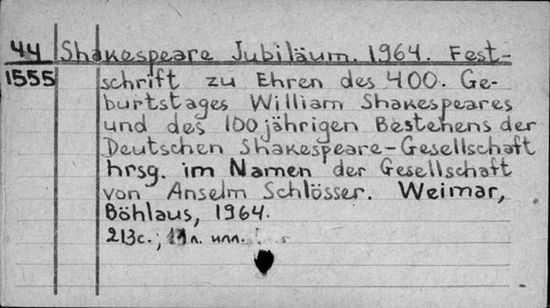 44 Shakespeare Jubiläum. 1964. Fest-
1555 schrift zu Ehren des 400. Ge-
burtstages William Shakespeares
und des 100jährigen Bestehens der
Deutschen Shakespeare-Gesellschaft
hrsg. im Namen der Gesellschaft
von Anselm Schlösser. Weimar,
Böhlaus, 1964.
213с.; л. илл.